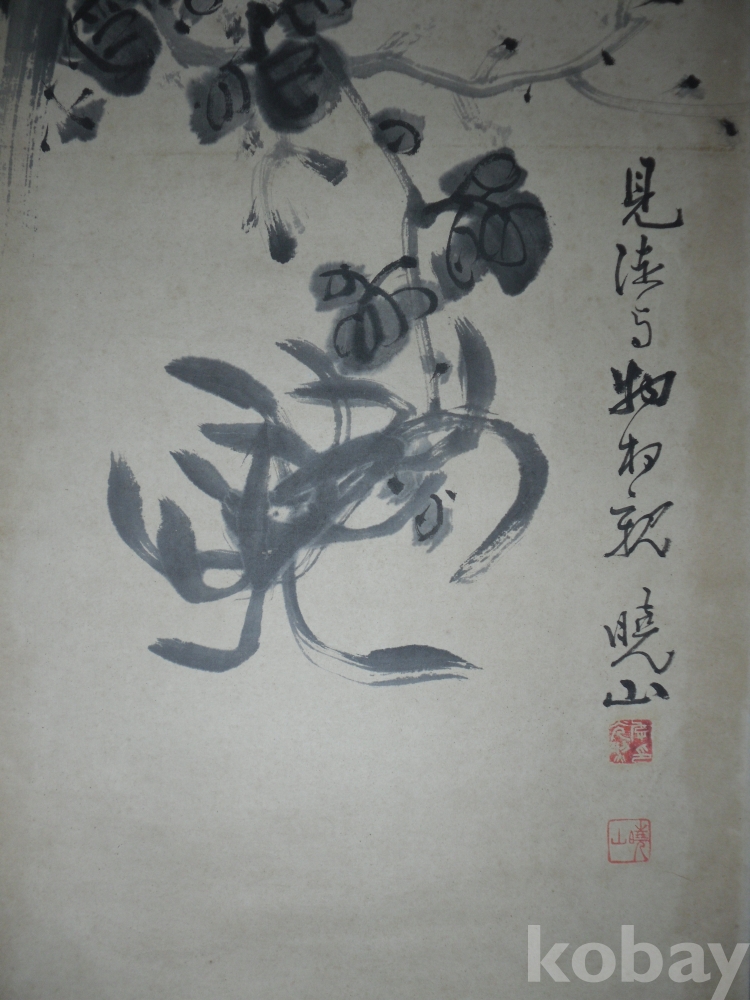 見法与物相親 曉山
曉山
kobay